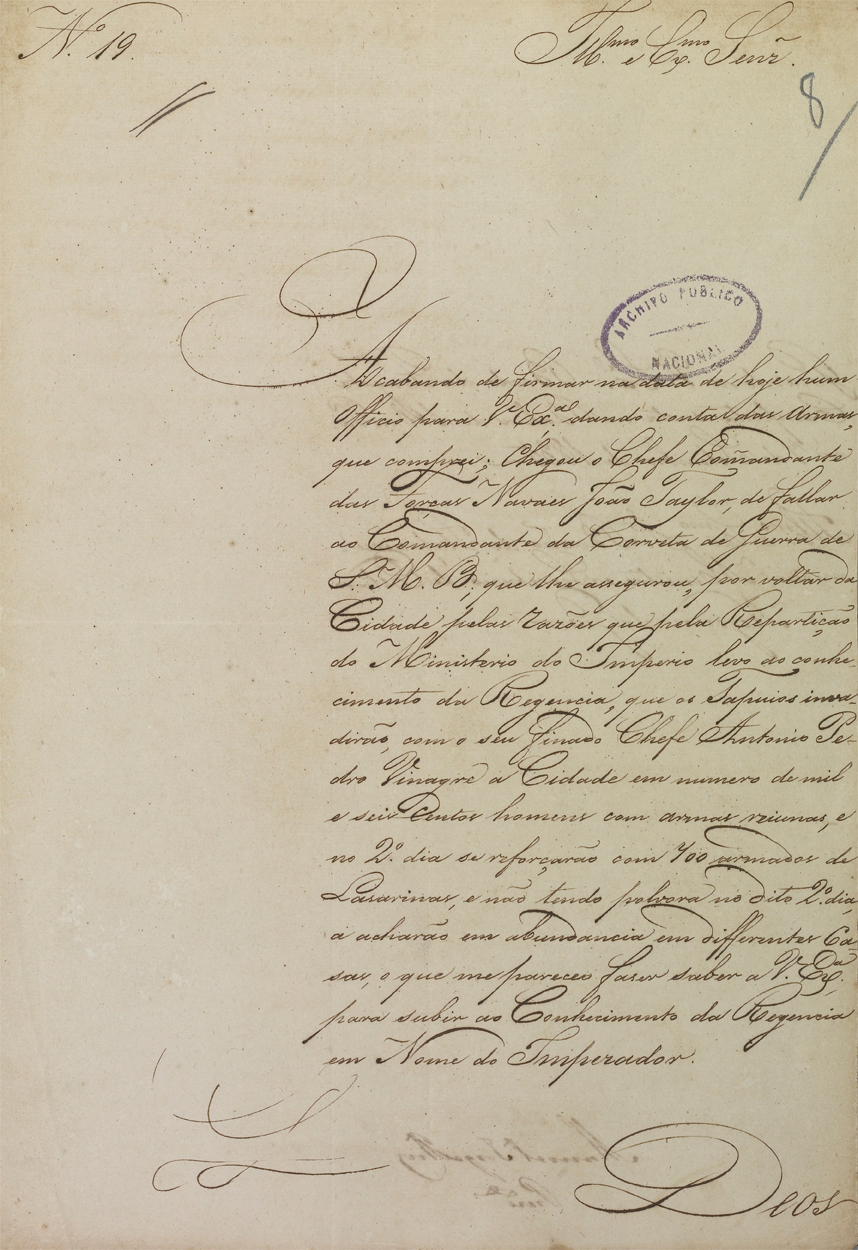 N.º 19.
Ill.mo e Ex.mo Senr.
8
ARCHIVO PUBLICO
NACIONAL
Acabando de firmar na data de hoje hum
Officio para V. Ex.ª dando conta das Armas,
que comprei; Chegou o Chefe Comandante
das Forças Navaes João Taylor, de fallar
ao Comandante da Corveta de Guerra de
S. M. B., que lhe assegurou, por voltar da
Cidade pelas razões que pela Repartição
do Ministerio do Imperio levo ao conhe-
cimento da Regencia, que os Tapuios inva-
dirão, com o seu finado Chefe Antonio Pe-
dro Vinagre a Cidade em numero de mil
e seis Centos homens com armas reiunas, e
no 2.º dia se reforçarão com 700 armados de
Lasarinas, e não tendo polvora no dito 2.º dia,
a acharão em abundancia em differentes Ca-
sas, o que me pareceo faser saber a V. Ex.ª
para subir ao Conhecimento da Regencia
em Nome do Imperador.
Deos